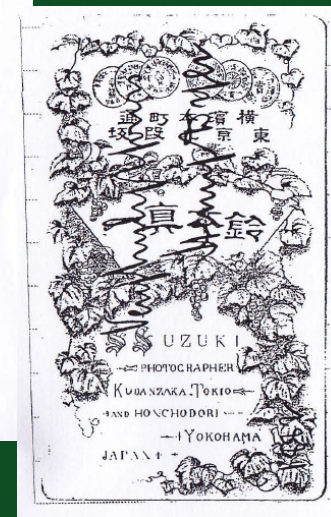 横濱本町通
東京九段坂
鈴木真一
S. SUZUKI
PHOTOGRAPHER
KUDANZAKA.TOKIO
AND HONCHODORI
YOKOHAMA
JAPAN